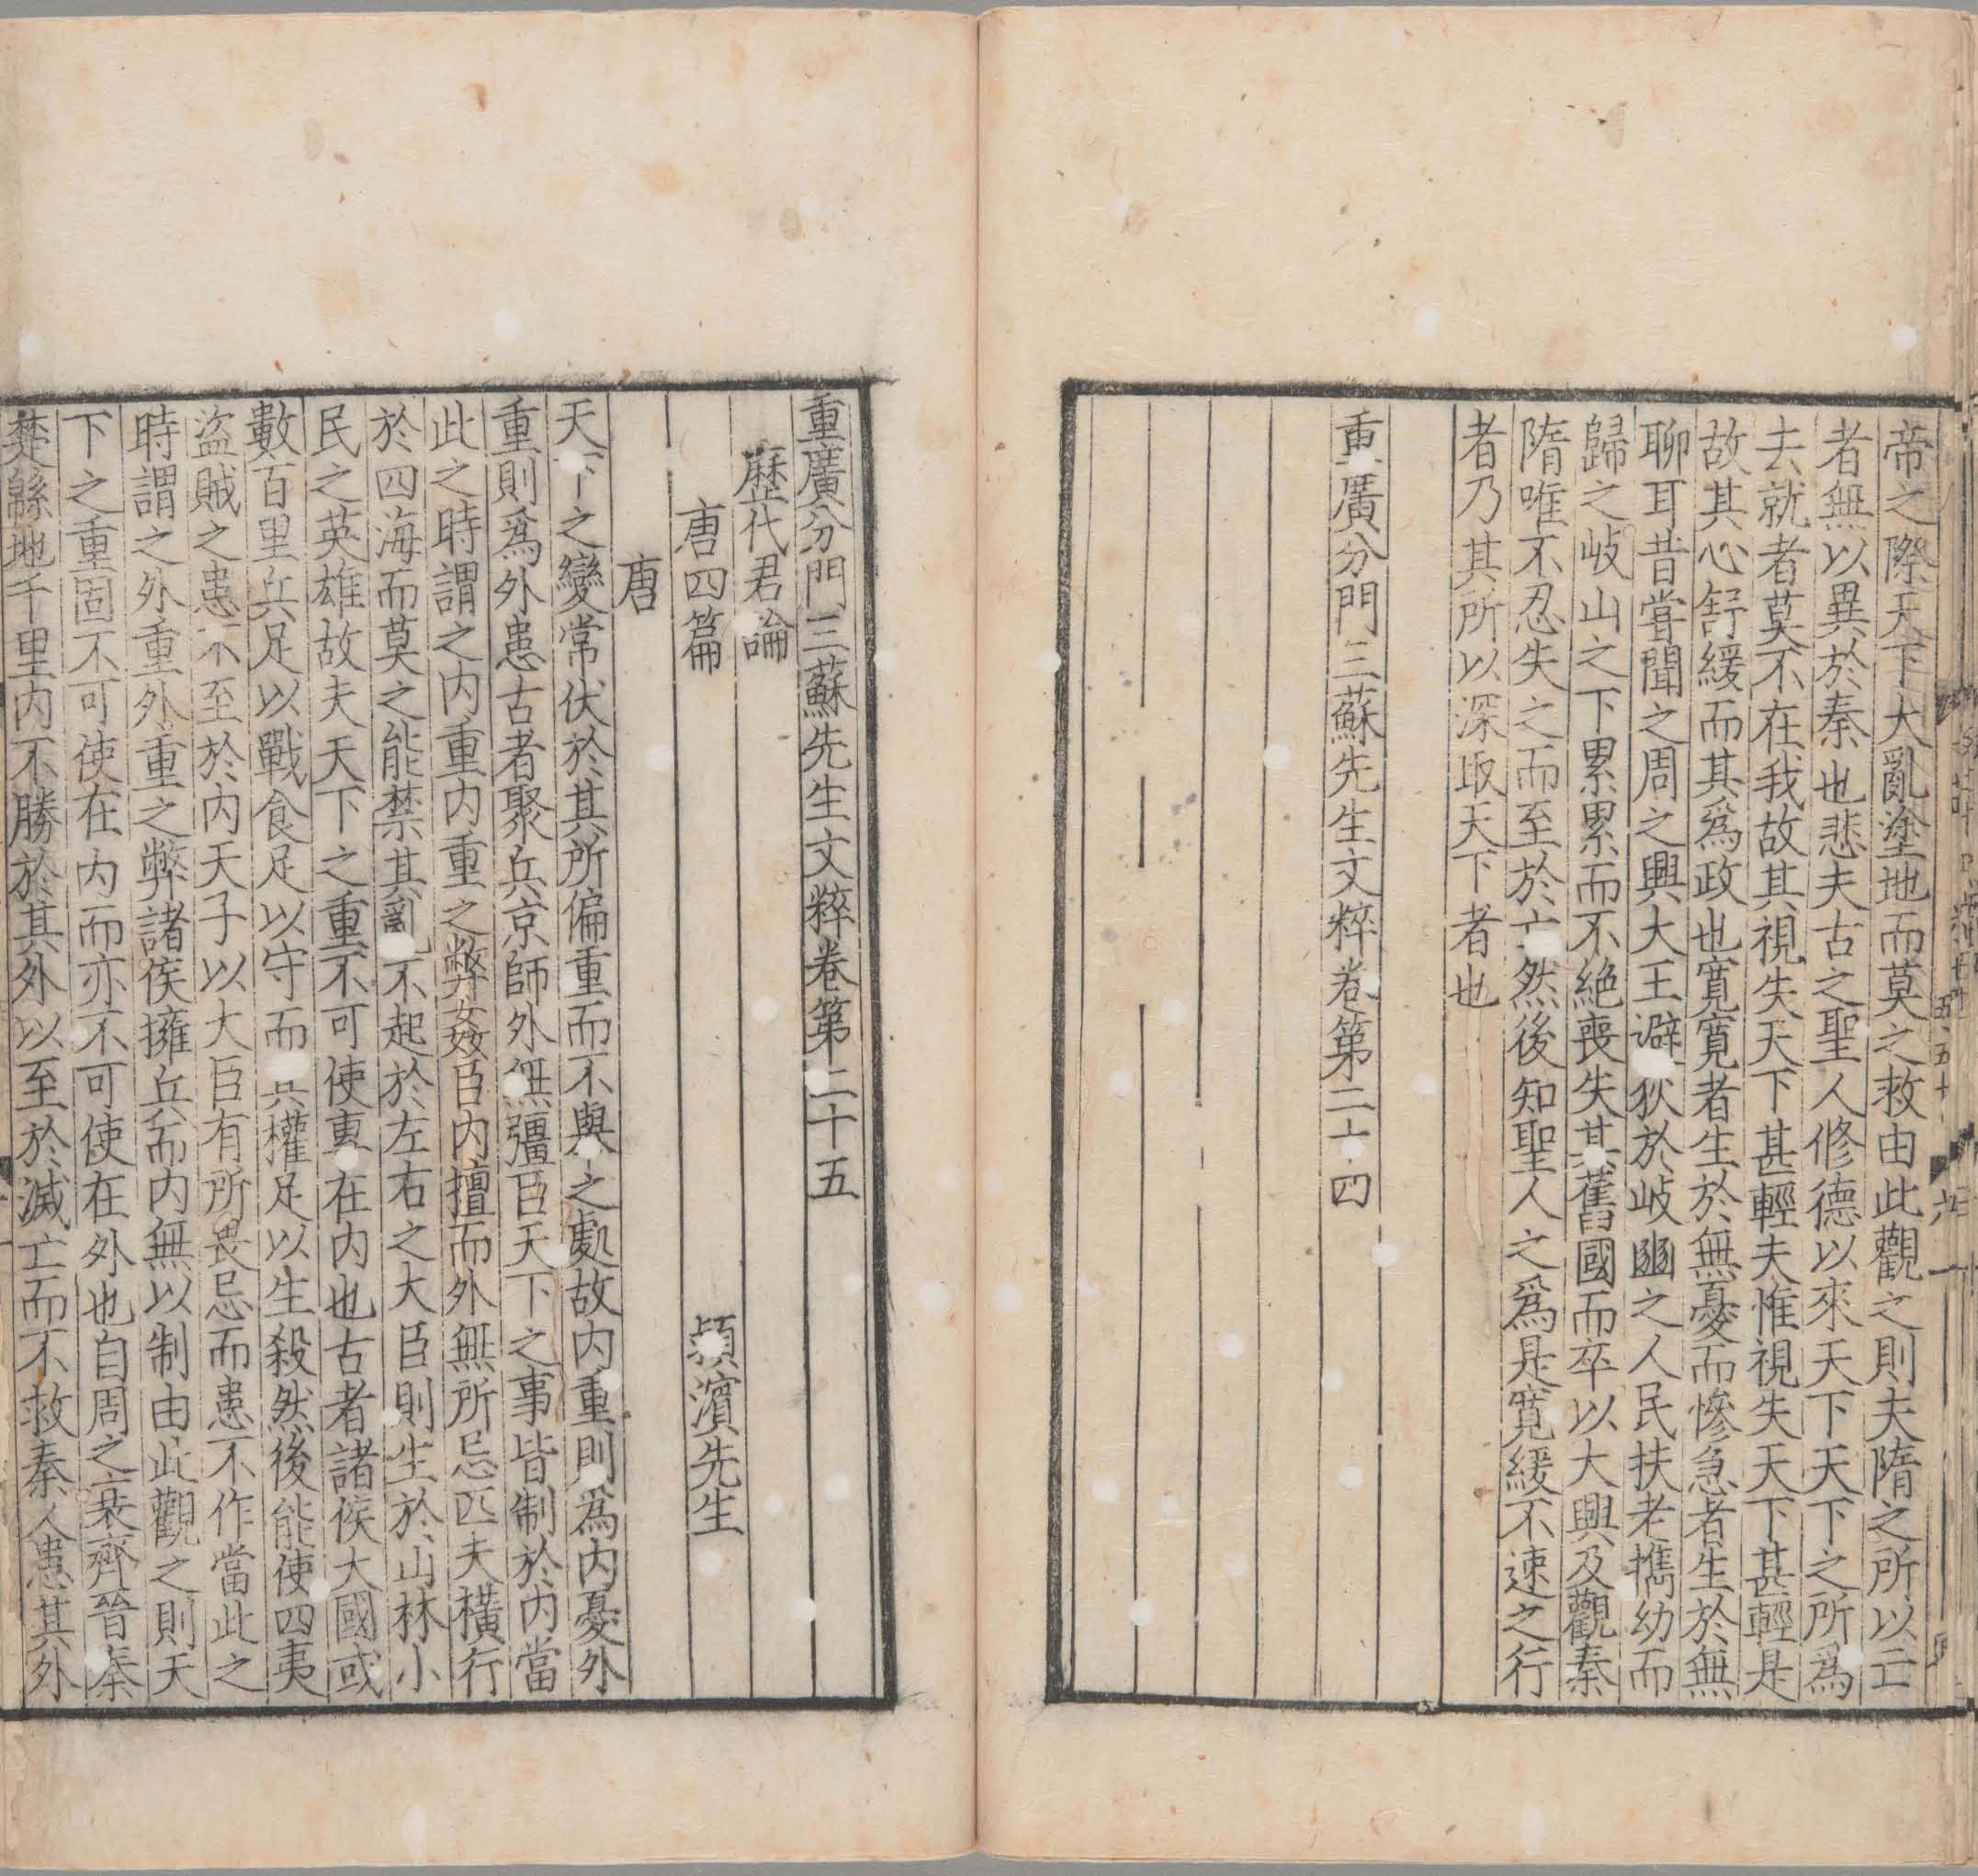 帝之際天下大亂塗地而莫之救由此觀之則夫隋之所以亡
者無以異於秦也悲夫古之聖人修德以來天下天下之所為
去就者莫不在我故其視失天下甚輕夫惟視失天下甚輕是
故其心舒緩而其爲政也寬寬者生於無憂而慘急者生於無
聊耳昔嘗聞之周之興大王避狄於岐豳之人民扶老攜幼而
歸之岐山之下累累而不絶喪失其舊國而卒以大興及觀秦
隋唯不忍失之而至於亡然後知聖人之爲是寛緩不速之行
者乃其所以深取天下者也
重廣分門三蘇先生文粹卷第二十四
重廣分門三蘇先生文粹卷第二十五
歷代君論
唐四篇 潁濱先生
唐
天下之變常伏於其所偏重而不與之處故内重則為内憂外
重則爲外患古者聚兵京師外無彊臣天下之事皆制於内當
此之時謂之内重内重之弊姦臣内擅而外無所忌匹夫橫行
於四海而莫之能禁其亂不起於左右之大臣則生於山林小
民之英雄故夫天下之重不可使專在内也古者諸侯大國或
數百里兵足以戰食足以守而其權足以生殺然後能使四夷
盜賊之患不至於内天子以大臣有所畏忌而患不作當此之
時謂之外重外重之弊諸侯擁兵而内無以制由此觀之則天
下之重固不可使在内而亦不可使在外也自周之衰齊晉秦
楚緜地千里内不勝於其外以至於滅亡而不救秦人患其外